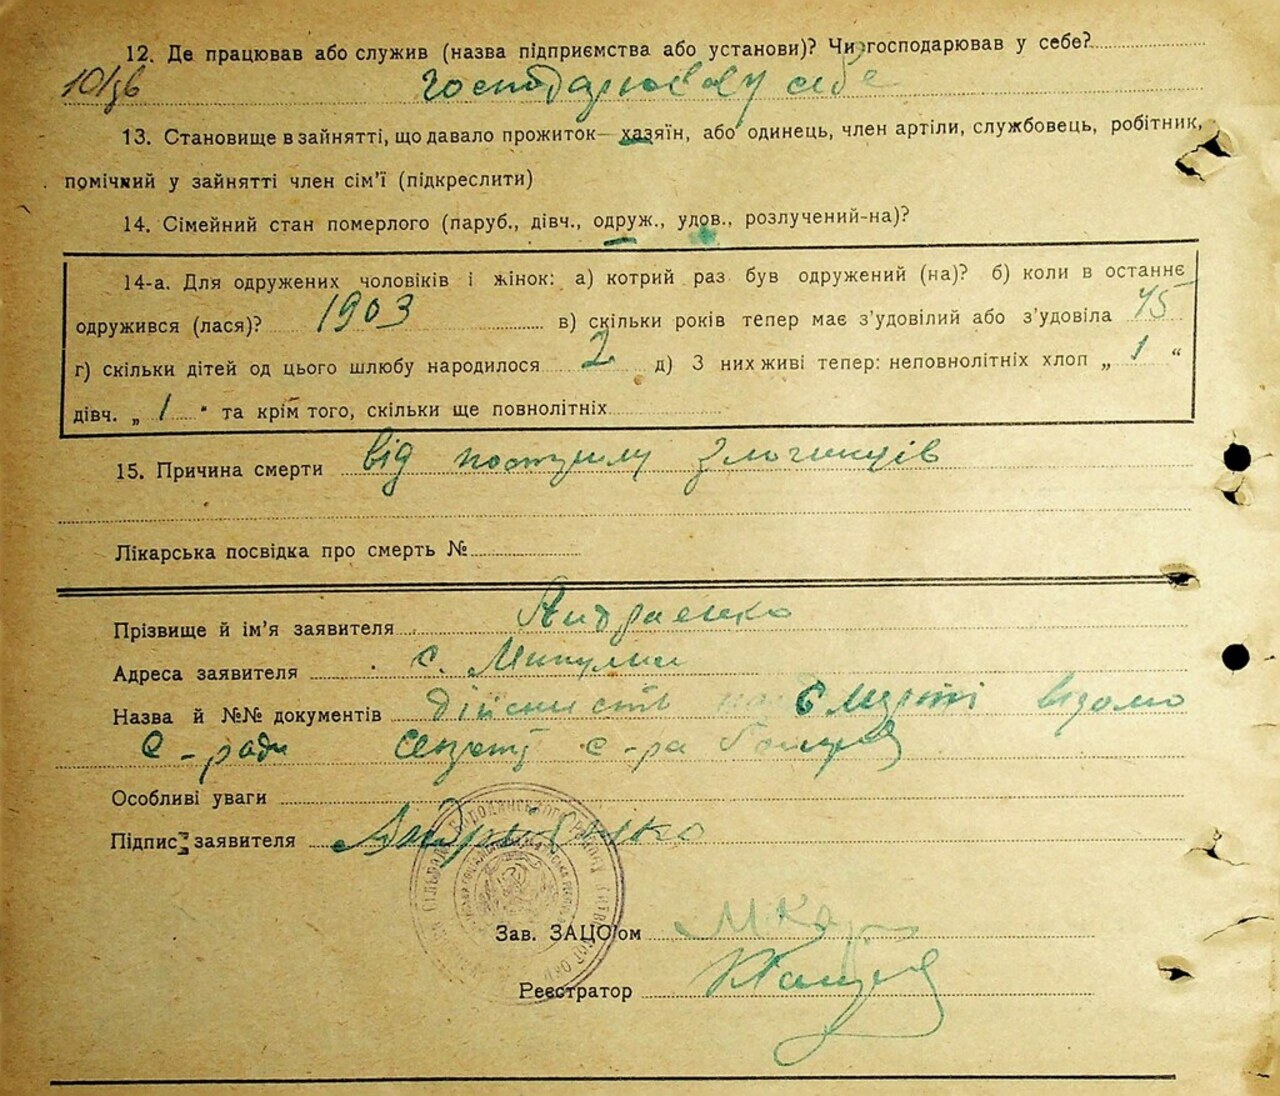 12. Де працював або служив (назва підприємства або установи)? Чи господарював у себе?
господарював у себе
13. Становище в зайнятті, що давало прожиток— хазяїн, або одинець, член артіли, службовець, робітник,
помічний у зайнятті член сім’ї (підкреслити)
14. Сімейний стан померлого (паруб., дівч., одруж., удов., розлучений-на)?
14-а. Для одружених чоловіків і жінок: а) котрий раз був одружений (на)? б) коли в останнє
одружився (лася)? 1903 в) скільки років тепер має з’удовілий або з’удовіла 45
г) скільки дітей од цього шлюбу народилося 2 д) З них живі тепер: неповнолітніх хлоп „ 1 “
дівч. „ 1 “ та крім того, скільки ще повнолітніх
15. Причина смерти від злочинців
Лікарська посвідка про смерть №
Прізвище й ім’я заявителя Андраенко
Адреса заявителя с. Микулич
Назва й №№ документів дійсність смерті відомо
С-ради с-ра
Особливі уваги
Підпис заявителя
Зав. ЗАЦС’ом
Реєстратор